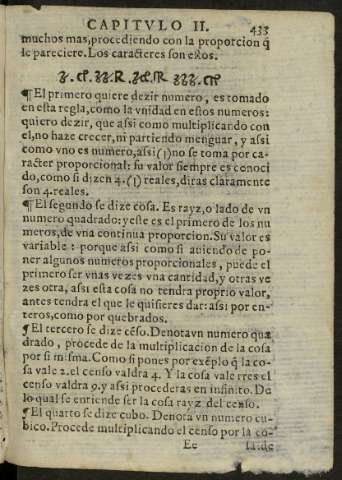 CAPITVLO II. 433
muchos mas, procediendo con la proporcion q̃
le pareciere. Los caracteres son estos.
¶ El primero quiere dezir numero, es tomado
en esta regla, como la vnidad en estos numeros:
quiero dezir, que assi como multiplicando con
el, no haze crecer, ni partiendo menguar, y assi
como vno es numero, assi (1) no se toma por ca-
racter proporcional: su valor siempre es conoci
do, como si dizen 4. (1) reales, diras claramente
son 4. reales.
¶ El segundo se dize cosa. Es rayz, o lado de vn
numero quadrado: y este es el primero de los nu
meros, de vna continua proporcion. Su valor es
variable: porque assi como si auiendo de po-
ner algunos numeros proporcionales, puede el
primero ser vnas vezes vna cantidad, y otras ve
zes otra, assi esta cosa no tendra proprio valor,
antes tendra el que le quisieres dar: assi por en-
teros, como por quebrados.
¶ El tercero se dize cẽso. Denota vn numero qua
drado, procede de la multiplicacion de la cosa
por si misma. Como si pones por exẽplo q̃ la co-
sa vale 2. el censo valdra 4. Y la cosa vale tres el
censo valdra 9. y assi procederas en infinito. De
lo qual se entiende ser la cosa rayz del censo.
¶ El quarto se dize cubo. Denota vn numero cu-
bico. Procede multiplicando el censo por la co-
Ee sa: de